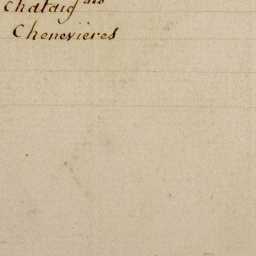 Chataig^ers
Chenevières